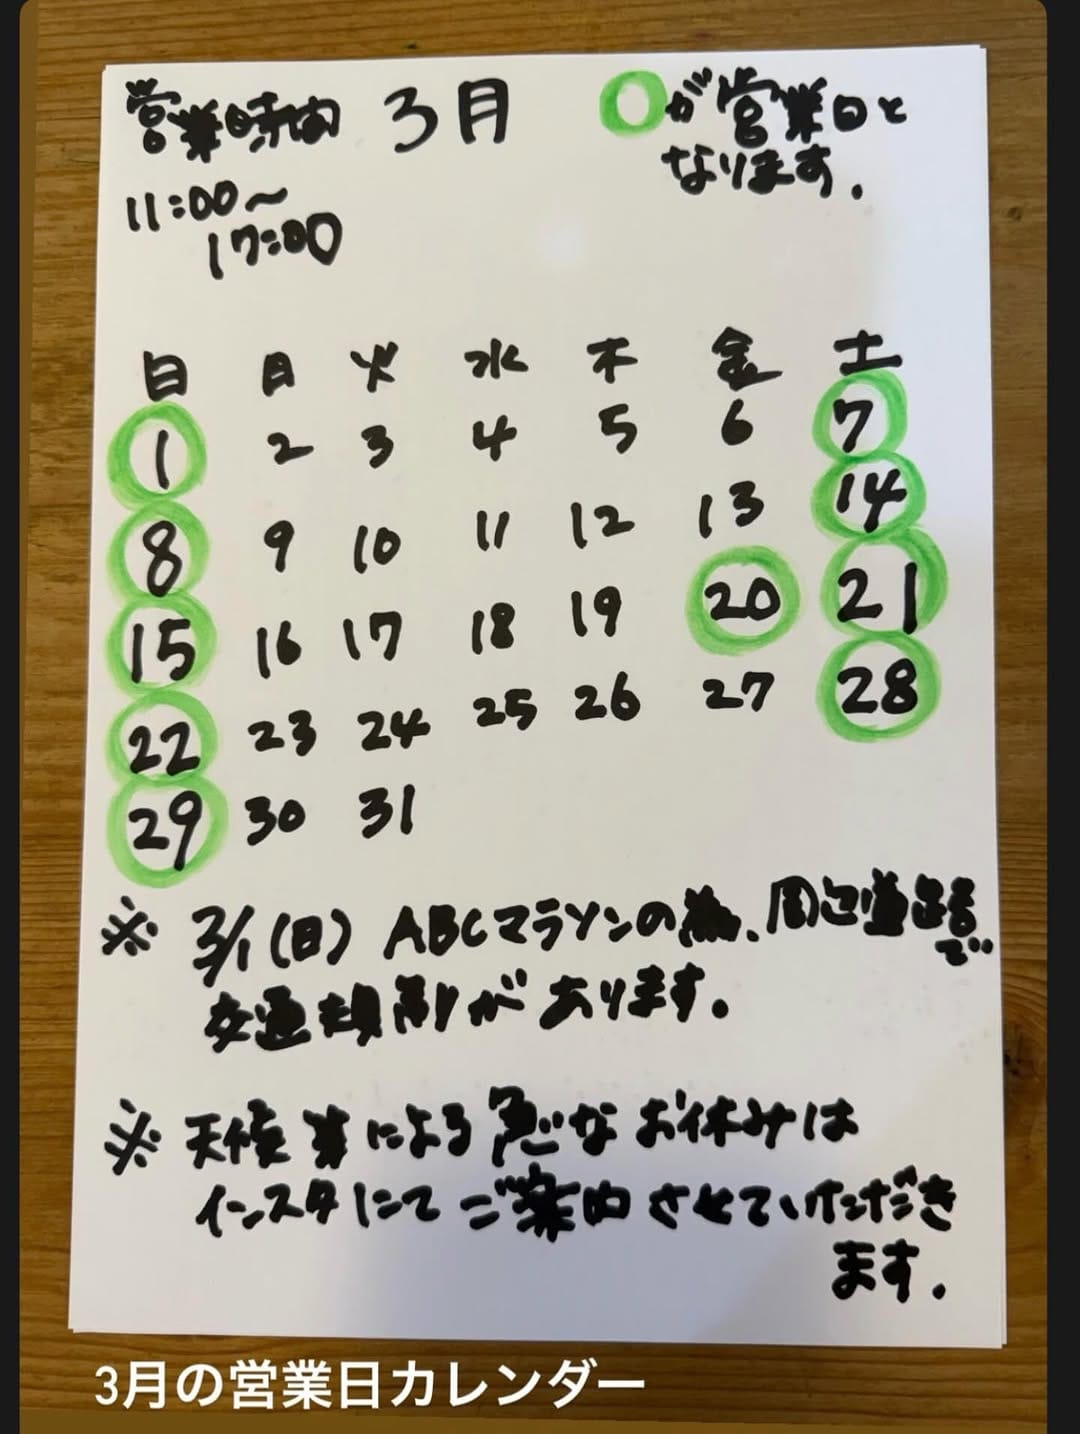 営業時間 3月 ○が営業日と
なります.
11:00～
17:00
日 月 火 水 木 金 土
1 2 3 4 5 6 7
8 9 10 11 12 13 14
15 16 17 18 19 20 21
22 23 24 25 26 27 28
29 30 31
※ 3/1(日) ABCマラソンの為、周辺道路で
交通規制があります。
※ 天候等による急なお休みは
インスタにてご案内させていただき
ます.
3月の営業日カレンダー